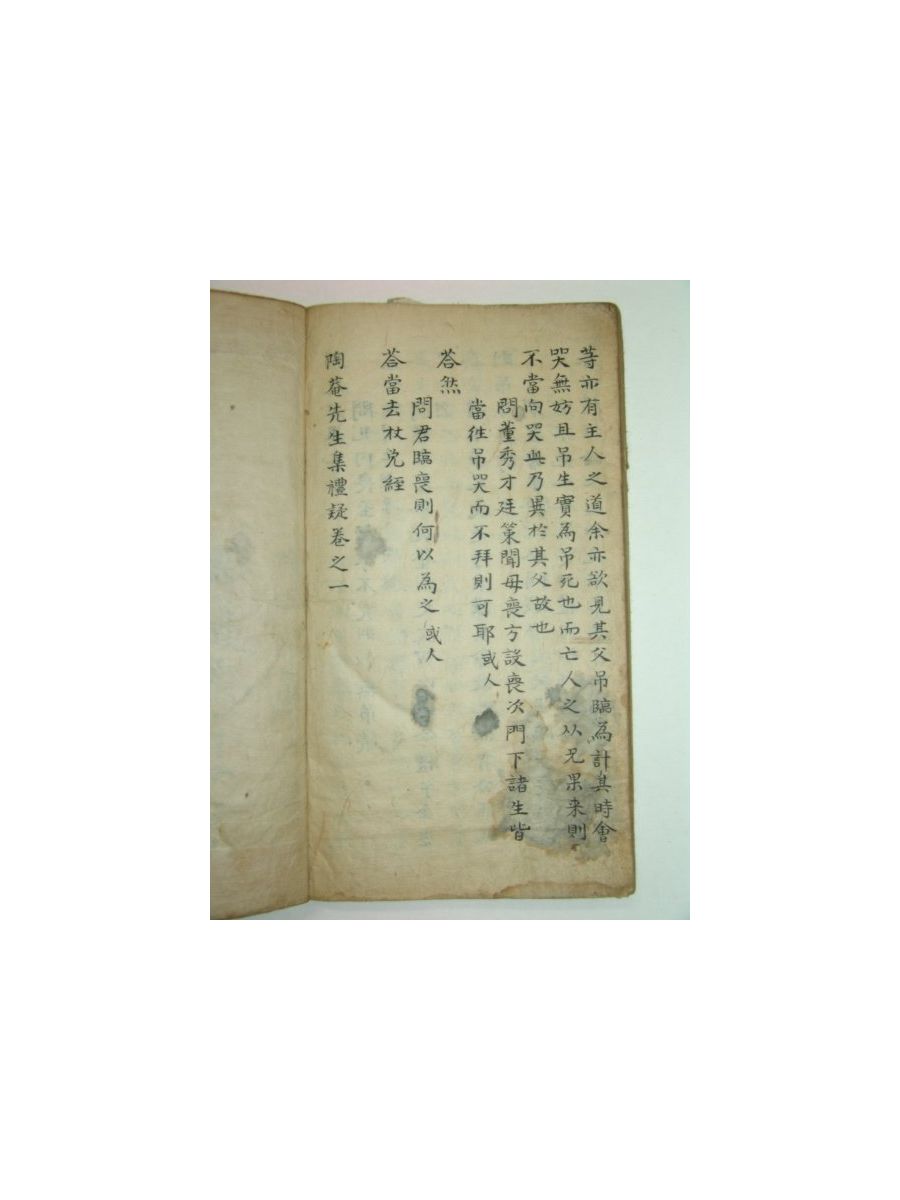 等亦有主人之道余亦欲見其父吊臨為計其時會
哭無妨且吊生實為吊死也而亡人之從兄果来則
不當向哭此乃異於其父故也
問董秀才廷策聞母喪方設喪次門下諸生皆
當徃吊哭而不拜則可耶 或人
荅然
問君臨喪則何以為之 或人
荅當去杖免絰
陶菴先生集禮疑卷之一